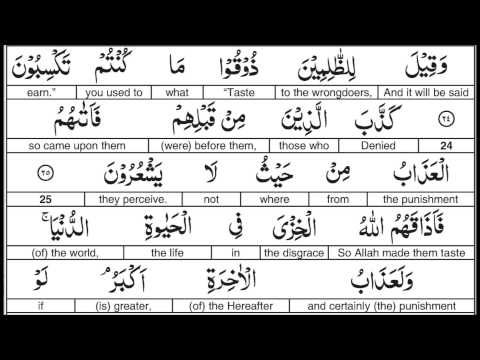 وَقِيلَ لِلظّٰلِمِيْنَ ذُوْقُوْا مَا كُنْتُمْ تَكْسِبُوْنَ
earn.” you used to what “Taste to the wrongdoers, And it will be said
٢٤ كَذَّبَ الَّذِيْنَ مِنْ قَبْلِهِمْ فَاَتٰىهُمُ
so came upon them (were) before them, those who Denied 24
الْعَذَابُ مِنْ حَيْثُ لَا يَشْعُرُوْنَ ٢٥
25 they perceive. not where from the punishment
فَاَذَاقَهُمُ اللّٰهُ الْخِزْىَ فِى الْحَيٰوةِ الدُّنْيَا ۚ
(of) the world, the life in the disgrace So Allah made them taste
وَلَعَذَابُ الْاٰخِرَةِ اَكْبَرُ ۘ لَوْ
if (is) greater, (of) the Hereafter and certainly (the) punishment